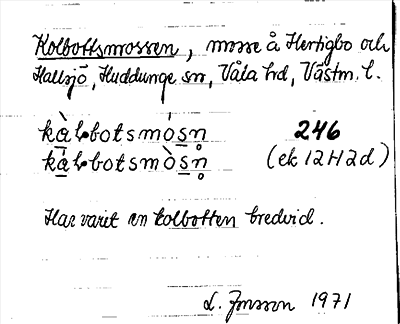 Kolbottsmossen, mosse å Hertigbo och
Hallsjö, Huddunge sn, Våla hd, Västm. l.
kàlbotsmósn̥ 246
kálbotsmòsn̥ (ek 12H2d)
Har varit en kolbotten bredvid.
L. Jonsson 1971